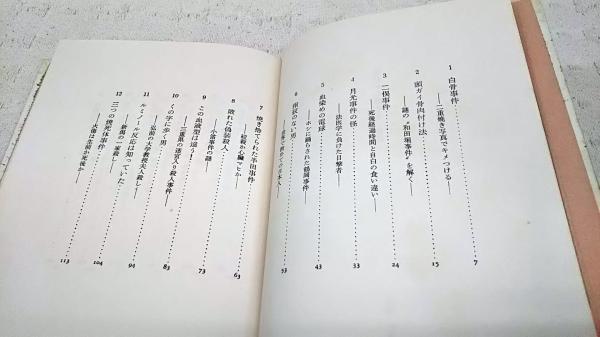 1 白骨事件
──二重焼き写真でキメつける── 7
2 頭ガイ骨肉付け法
──謎の〝和田堀事件〟を解く 15
3 二俣事件
──死後経過時間と自白の食い違い── 24
4 月光事件の怪
──法医学に負けた目撃者 33
5 血染めの電球
──ホシに踊らされた鶴岡事件── 43
6 指紋のない男 53
7 焼き捨てられた 事件 63
8 敗れた偽装殺人
──絞殺か心臓マヒか
9 この血液型は違う!
──小笛事件の謎── 73
10 くの字に歩く男
──三重県の迷宮入り殺人事件── 83
11 ルミノール反応は知っていた
──弘前の大学教授夫人殺し── 94
12 三つの焼死体事件
──群馬の一家殺し── 104
──大衡は生前か死後か 113